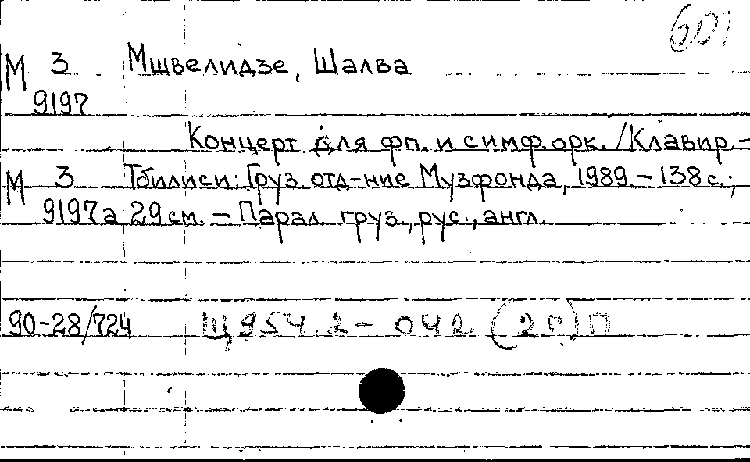 601
М 3 Мшвелидзе, Шалва
9197
Концерт для фп. и симф. орк. /Клавир -
М 3 Тбилиси: Груз. отд-ние Музфонда, 1989. - 138 с.;
9197а 29 см. - Парал. груз., рус., англ.
90-28/724 Щ954.2-042 (2Г) П